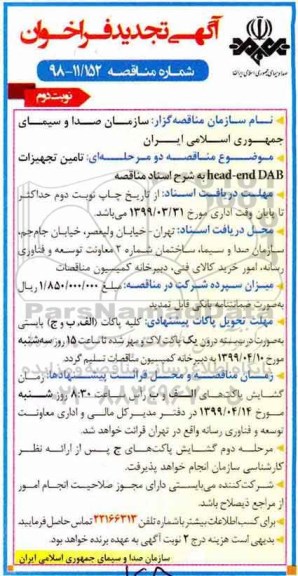 آگهی تجدید فراخوان
شماره مناقصه ۱۱/۱۵۲-۹۸
صدا و سیمای جمهوری اسلامی ایران
نوبت دوم
نـــام سازمان مناقصه‌گزار: سازمان صدا و سیمای
جمهوری اسـلامی ایـران
موضـوع مناقصـه دو مرحلـه‌ای: تامین تجهیزات
head-end DAB به شرح اسناد مناقصه
مهلت دریافت اسناد: از تاریخ چاپ نوبت دوم حداکثر
تا پایان وقت اداری مورخ ۱۳۹۹/۰۳/۳۱ می‌باشد.
محل دریافت اسناد: تهران - خیابان ولیعصر، خیابان جام‌جم،
سازمان صدا و سیما، ساختمان شماره ۲ معاونت توسعه و فناوری
رسانه، امور خرید کالای فنی، دبیرخانه کمیسیون مناقصات
میزان سپرده شرکت در مناقصه: مبلغ ۱/۸۵۰/۰۰۰/۰۰۰ ریال
به‌صورت ضمانتنامه بانکی قابل تمدید
مهلت تحویل پاکات پیشنهادی: کلیه پاکات (الف، ب و ج) بایستی
به‌صورت دربسته درون یک پاکت لاک و مهر شده تا ساعت ۱۵ روز سه‌شنبه
مورخ ۱۳۹۹/۰۴/۱۰ به دبیرخانه کمیسیون مناقصات تسلیم گردد.
زمـان مناقصـه و محل قرائت پیشنهادها: زمان
گشایش پاکت‌های الف و ب راس ساعت ۸:۳۰ روز شنبه
مورخ ۱۳۹۹/۰۴/۱۴ در دفتر مدیرکل مالی و اداری معاونت
توسعه و فناوری رسانه واقع در تهران قرائت خواهد شد.
مرحله دوم گشایش پاکت‌های ج پس از ارائه نظر
کارشناسی سازمان انجام خواهد پذیرفت.
شرکت‌کننده می‌بایستی دارای مجوز صلاحیت انجام امور
از مراجع ذیصلاح باشد.
برای کسب اطلاعات بیشتر با شماره تلفن ۲۲۱۶۶۲۱۳ تماس حاصل فرمایید.
بدیهی است هزینه درج ۲ نوبت آگهی به عهده برنده خواهد بود.
سازمان صدا و سیمای جمهوری اسلامی ایران